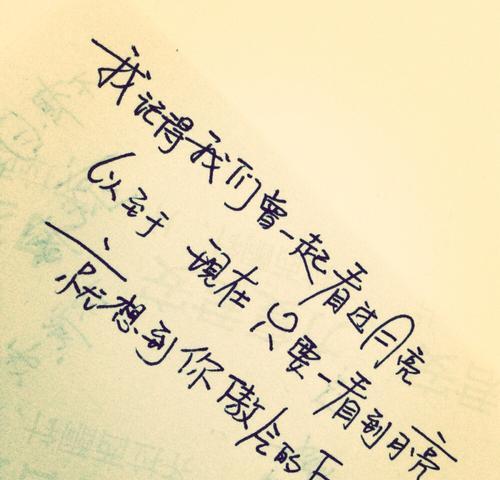 我记得我们曾一起看过月亮
以至于 现在只要一看到月亮
就想到你傲气的下